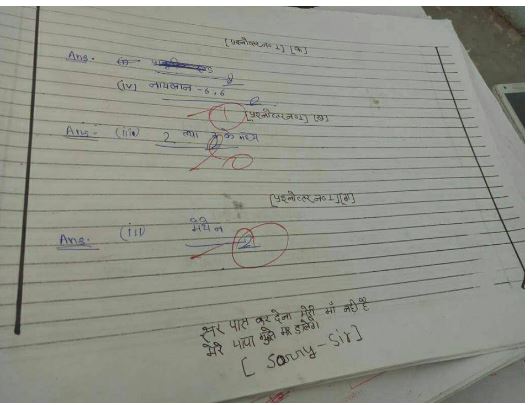 [प्रश्नोत्तर नं० 1] [क]
Ans.
(iv) नायलान - 6,6
1 [प्रश्नोत्तर नं० 1] [ख]
Ans - (iii) 2 तथा के मध्य
[प्रश्नोत्तर नं० 1] [ग]
Ans. (iii) मेथेन
2
सर पास कर देना मेरी माँ नहीं है
मेरे पापा मुझे मार डालेंगे
[ Sorry - Sir ]